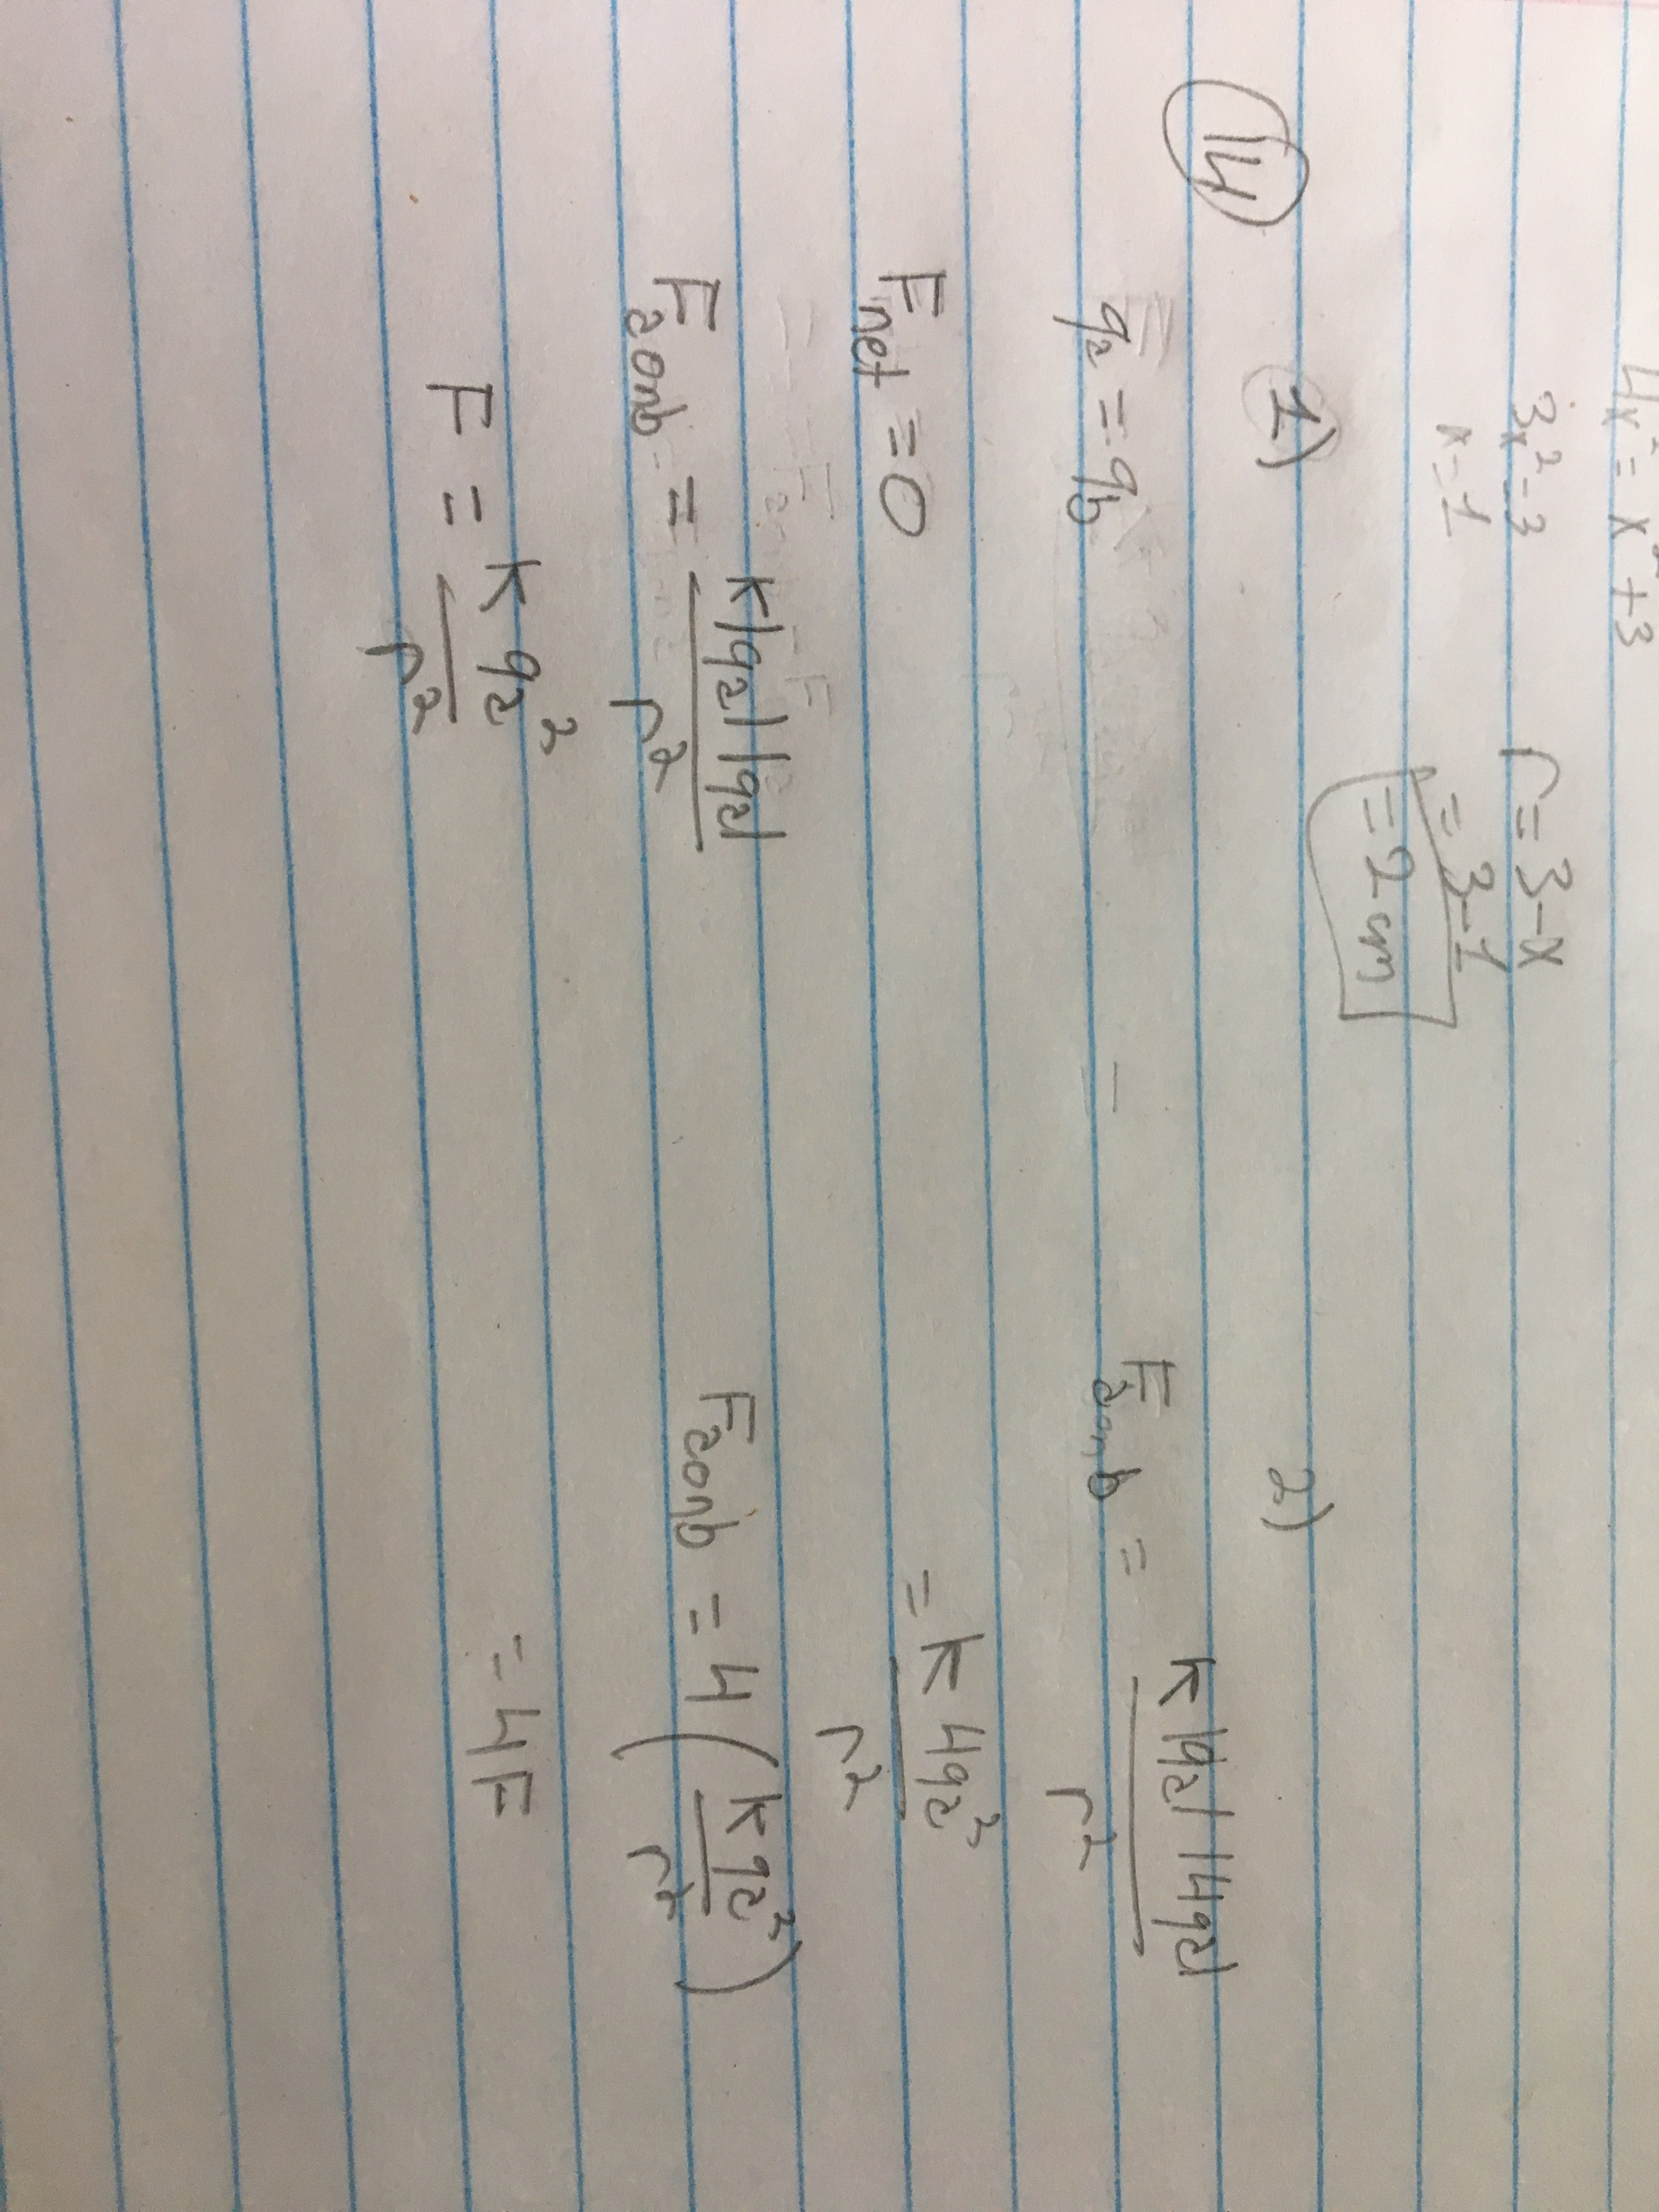 4x² = x² + 3
3x² = 3 r = 3 - x
x = 1 = 3 - 1
= 2 cm
14 1) 2)
qa = qb
F net = 0
F a on b = k|qa||qa| / r²
F = k qa² / r²
F a on b = k|qa||4qa| / r²
= k 4qa² / r²
F a on b = 4 (k qa² / r²)
= 4F